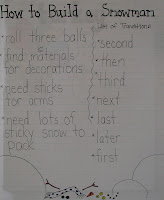 How to Build a Snowman
• roll three balls
• find materials
for decorations
• need sticks
for arms
• need lots of
sticky snow to
pack
List of Transitions
• second
• then
• third
• next
• last
• later
• first